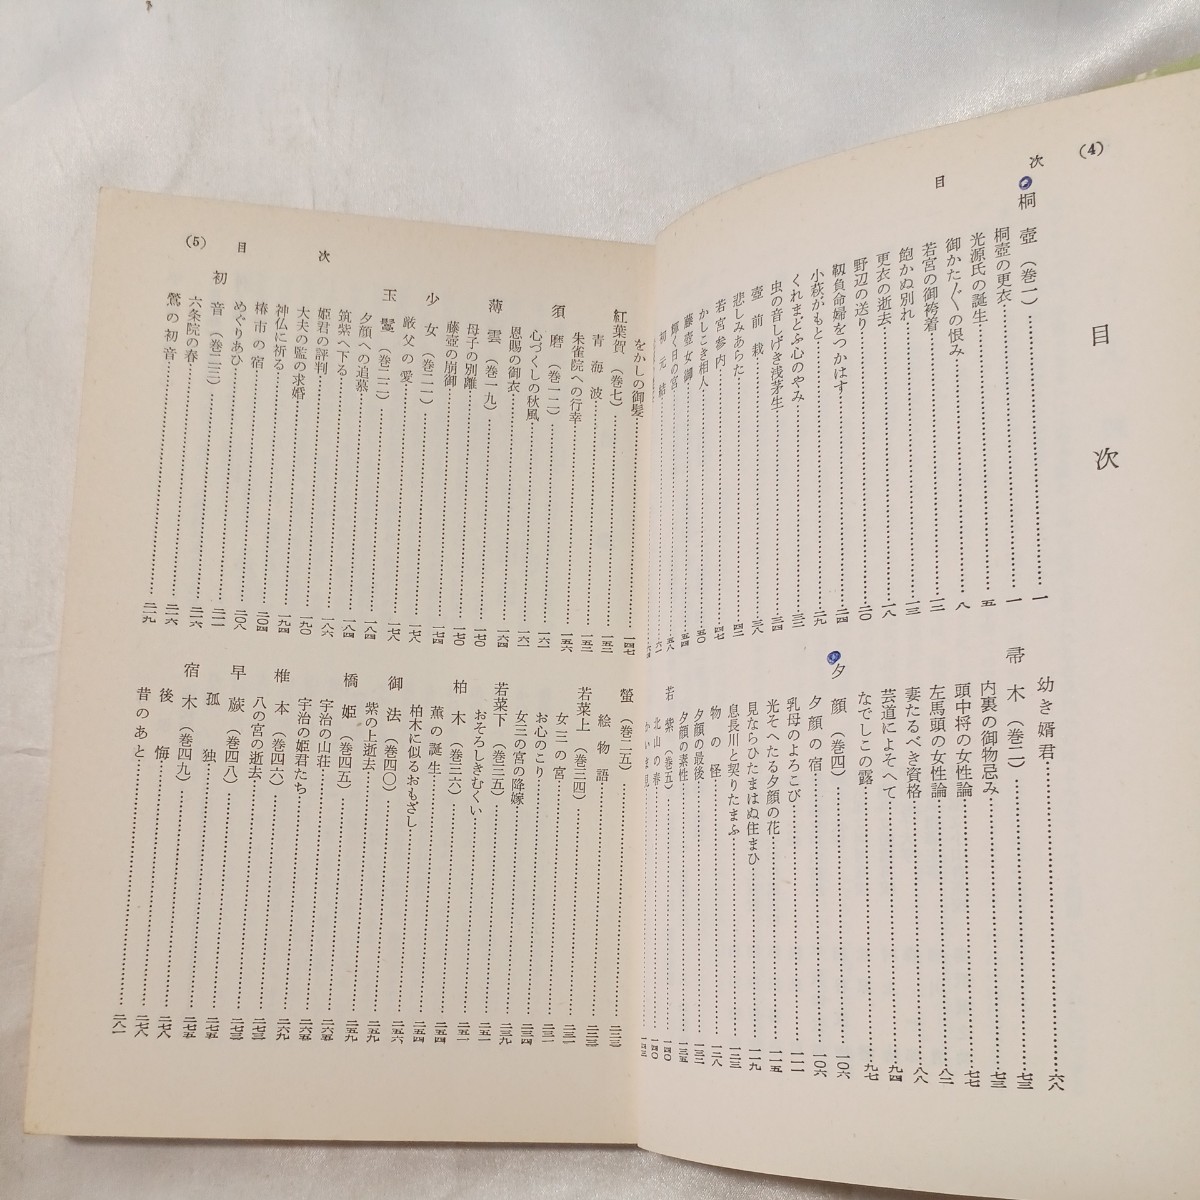 (4)
目　次
目　次
桐　壺（巻一）……一
桐壺の更衣……一
光源氏の誕生……五
御かた〴〵の恨み……八
若宮の御袴着……一二
飽かぬ別れ……一三
更衣の逝去……一八
野辺の送り……二〇
靱負命婦をつかはす……二四
小萩がもと……二九
くれまどふ心のやみ……三二
虫の音しげき浅茅生……三五
壺前栽……三八
悲しみあらた……四二
若宮参内……四七
かしこき相人……五〇
藤壺女御……五四
輝く日の宮……五八
初元結……六一
幼き婿君……六八
帚　木（巻二）……七三
内裏の御物忌み……七三
頭中将の女性論……七七
左馬頭の女性論……八二
妻たるべき資格……八八
芸道によそへて……九四
なでしこの露……九七
夕　顔（巻四）……一〇六
夕顔の宿……一〇六
乳母のよろこび……一一一
光そへたる夕顔の花……一一五
見ならひたまはぬ住まひ……一一九
息長川と契りたまふ……一二三
物の怪……一二八
夕顔の最後……一三二
夕顔の素性……一三五
若　紫（巻五）……一四〇
北山の春……一四〇
かいま見……一四三
(5)
目　次
をかしの御髪……一四七
紅葉賀（巻七）……一五二
青海波……一五二
朱雀院への行幸……一五六
須　磨（巻一二）……一六一
心づくしの秋風……一六一
恩賜の御衣……一六四
薄　雲（巻一九）……一七〇
母子の別離……一七〇
藤壺の崩御……一七四
少　女（巻二一）……一七八
厳父の愛……一七八
玉　鬘（巻二二）……一八四
夕顔への追慕……一八四
筑紫へ下る……一八六
姫君の評判……一九〇
大夫の監の求婚……一九四
神仏に祈る……二〇四
椿市の宿……二〇八
めぐりあひ……二一一
初　音（巻二三）……二一六
六条院の春……二一六
鶯の初音……二一九
螢（巻二五）……二二三
絵物語……二二三
若菜上（巻三四）……二三一
女三の宮……二三一
お心のこり……二三四
女三の宮の降嫁……二三九
若菜下（巻三五）……二五一
おそろしきむくい……二五一
柏　木（巻三六）……二五四
薫の誕生……二五四
柏木に似るおもざし……二五六
御　法（巻四〇）……二五九
紫の上逝去……二五九
橋　姫（巻四五）……二六五
宇治の山荘……二六五
宇治の姫君たち……二六九
椎　本（巻四六）……二七三
八の宮の逝去……二七三
早　蕨（巻四八）……二七五
孤　独……二七五
宿　木（巻四九）……二七八
後　悔……二七八
昔のあと……二八一